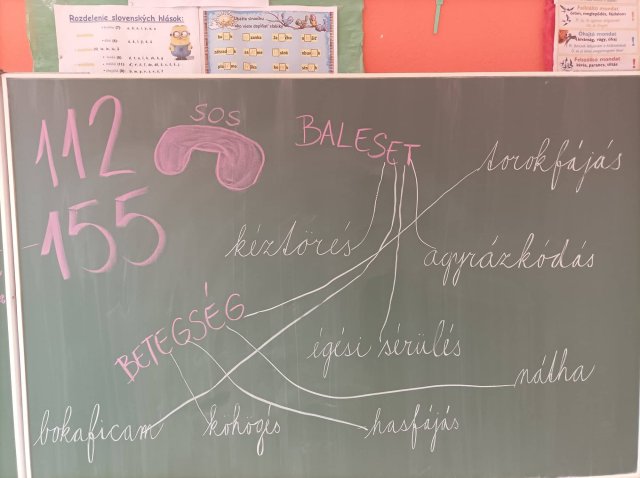 Rozdelenie slovenských hlások:
Felkiáltó mondat
Óhajtó mondat
Felszólító mondat
112
SOS
155
BALESET
torokfájás
kéztörés
agyrázkódás
BETEGSÉG
égési sérülés
nátha
bokaficam
köhögés
hasfájás